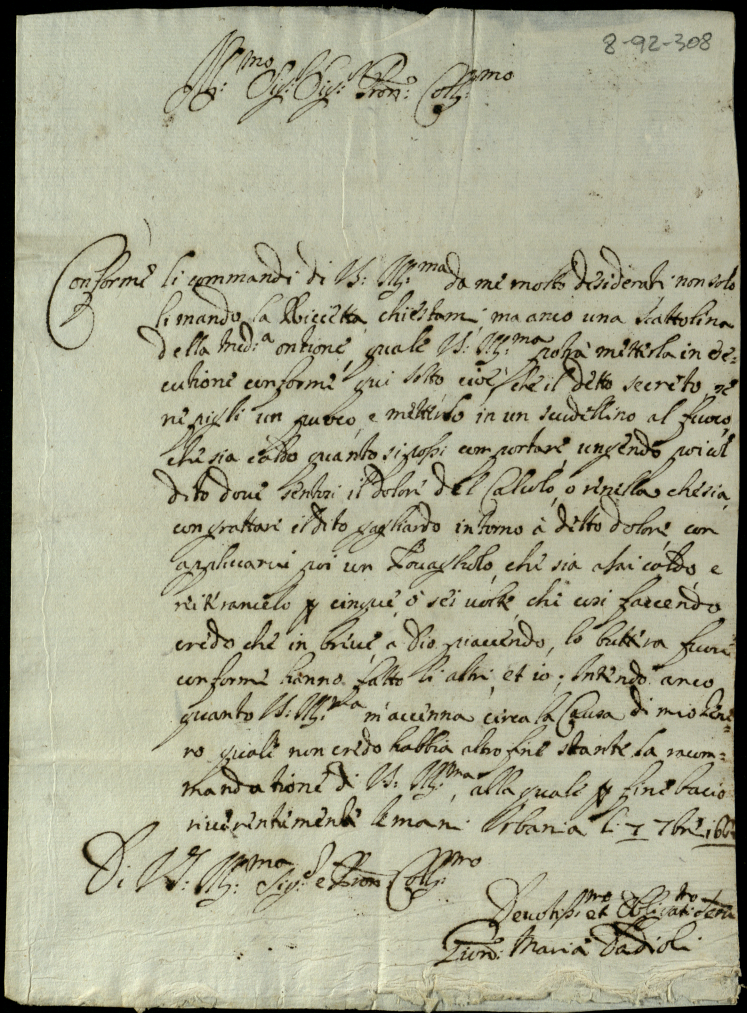 8-92-308
Ill:mo Sig:r Sig:r Pron: Coll:mo
Conforme li commandi di V: Ill:ma da me molto desiderati non solo
li mando la Riccetta chiestami; ma anco una scattolina
della med:a ontione, quale V: Ill:ma potrà metterla in ese=
cutione conforme qui sotto cioè che il detto secreto se
ne pigli un puoco, e metterlo in un scudellino al fuoco
che sia caldo quanto si possi comportare ungendo poi col
dito dove sentesi il dolore del Calculo, o renella che sia
con grattare il dito gagliardo intorno à detto dolore, con
applicarvi poi un Tovagliolo che sia assai caldo e
reiterarcelo p cinque, ò sei volte, che così facendo
credo che in breve, a Dio piacendo, lo butterà fuori
conforme hanno fatto li altri et io; Intendo anco
quanto V: Ill:ma m'accenna circa la Causa di mio Gene=
ro quale non credo habbia altro fine stante la racom=
mandatione di V: Ill:ma, alla quale p fine bacio
riverentemente le mani Urbania li 7 7bre
Di V: Ill:ma Sig:r e Pron Coll:mo
Devotiss:mo et Obligat:mo Ser:re
Maria